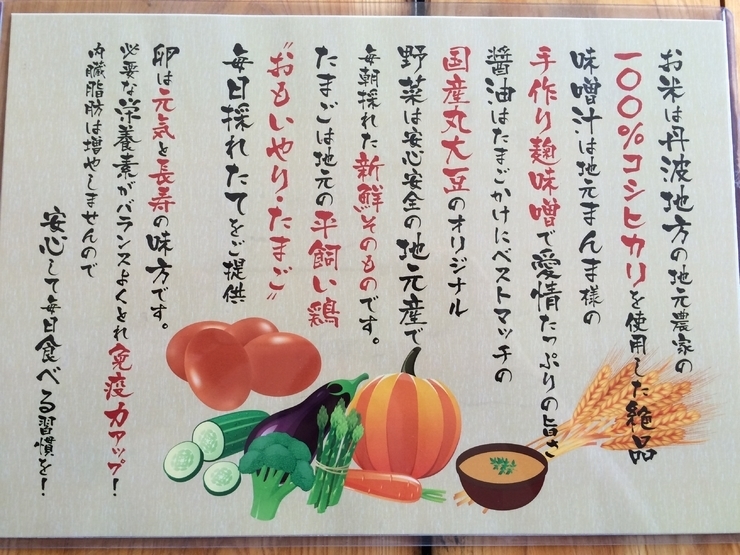 お米は丹波地方の地元農家の
100%コシヒカリを使用した絶品
味噌汁は地元まんま様の
手作り麹味噌で愛情たっぷりの旨さ
醤油はたまごかけにベストマッチの
国産丸大豆のオリジナル
野菜は安心安全の地元産で
毎朝採れた新鮮そのものです。
たまごは地元の平飼い鶏
"おもいやり・たまご"
毎日採れたてをご提供
卵は元気と長寿の味方です。
必要な栄養素がバランスよくとれ免疫力アップ!
内臓脂肪は増やしませんので
安心して毎日食べる習慣を!